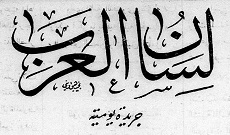 لسان العرب
جريدة يومية